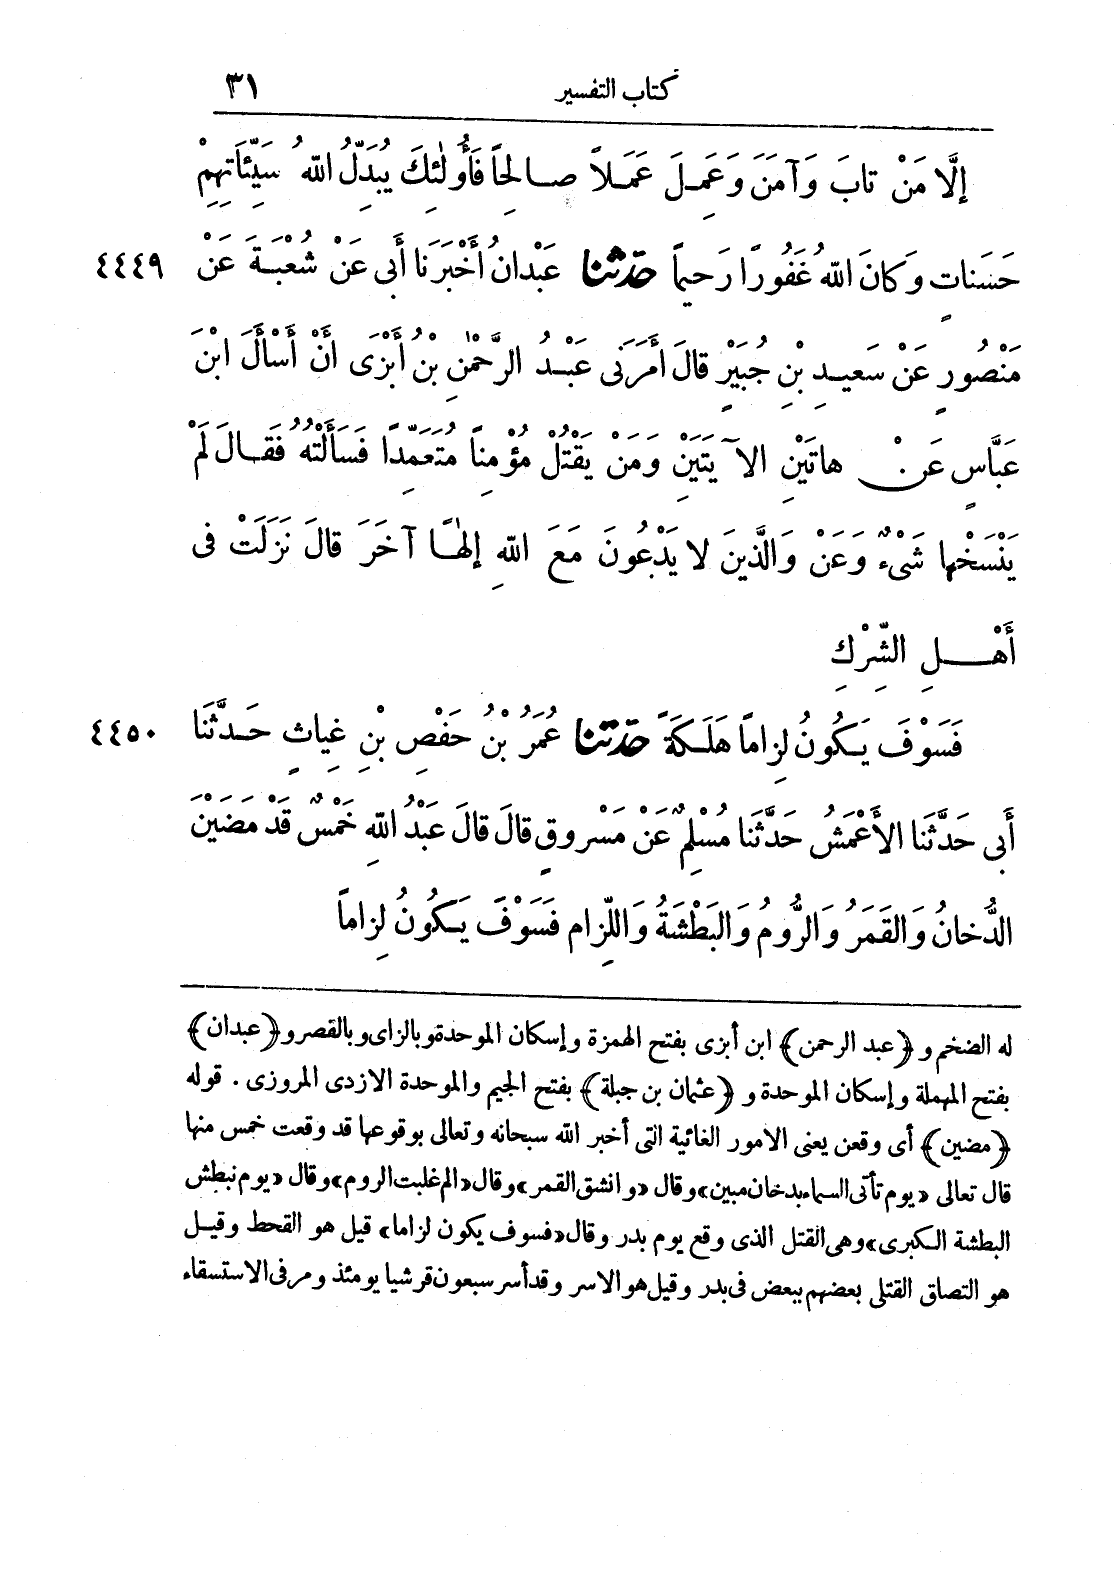 كتاب التفسير ٣١
إلَّا مَنْ تابَ وَآمَنَ وَعَمِلَ عَمَلاً صالِحاً فَأُولٰئِكَ يُبَدِّلُ اللهُ سَيِّئاتِهِمْ
حَسَناتٍ وَكانَ اللهُ غَفُورًا رَحيماً حَدّثنا عَبْدانُ أَخْبَرَنا أَبى عَنْ شُعْبَةَ عَنْ ٤٤٤٩
مَنْصُورٍ عَنْ سَعيدِ بْنِ جُبَيْرٍ قالَ أَمَرَنى عَبْدُ الرَّحْمٰنِ بْنُ أَبْزَى أَنْ أَسْأَلَ ابْنَ
عَبَّاسٍ عَنْ هاتَيْنِ الآيَتَيْنِ وَمَنْ يَقْتُلْ مُؤْمِناً مُتَعَمِّدًا فَسَأَلْتُهُ فَقالَ لَمْ
يَنْسَخْها شَىْءٌ وَعَنْ وَالَّذينَ لا يَدْعُونَ مَعَ اللهِ إِلٰهاً آخَرَ قالَ نَزَلَتْ فى
أَهْلِ الشِّرْكِ
فَسَوْفَ يَكُونُ لِزاماً هَلَكَةً حَدّثنا عُمَرُ بْنُ حَفْصِ بْنِ غِياثٍ حَدَّثَنا ٤٤٥٠
أَبى حَدَّثَنا الأَعْمَشُ حَدَّثَنا مُسْلِمٌ عَنْ مَسْروقٍ قالَ قالَ عَبْدُ اللهِ خَمْسٌ قَدْ مَضَيْنَ
الدُّخانُ وَالقَمَرُ وَالرُّومُ وَالبَطْشَةُ وَاللِّزامِ فَسَوْفَ يَكُونُ لِزاماً
له الضخم و ﴿عبد الرحمن﴾ ابن أبزى بفتح الهمزة وإسكان الموحدة وبالزاى وبالقصر و﴿عبدان﴾
بفتح المهملة وإسكان الموحدة و ﴿عثمان بن جبلة﴾ بفتح الجيم والموحدة الازدى المروزى . قوله
﴿مضين﴾ أى وقعن يعنى الامور الغائبة التى أخبر الله سبحانه وتعالى بوقوعها قد وقعت خمس منها
قال تعالى «يوم تأتى السماء بدخان مبين» وقال «وانشق القمر» وقال «الم غلبت الروم» وقال «يوم نبطش
البطشة الكبرى» وهى القتل الذى وقع يوم بدر وقال «فسوف يكون لزاما» قيل هو القحط وقيل
هو التصاق القتلى بعضهم ببعض فى بدر وقيل هو الاسر وقد أسر سبعون قرشيا يومئذ ومر فى الاستسقاء